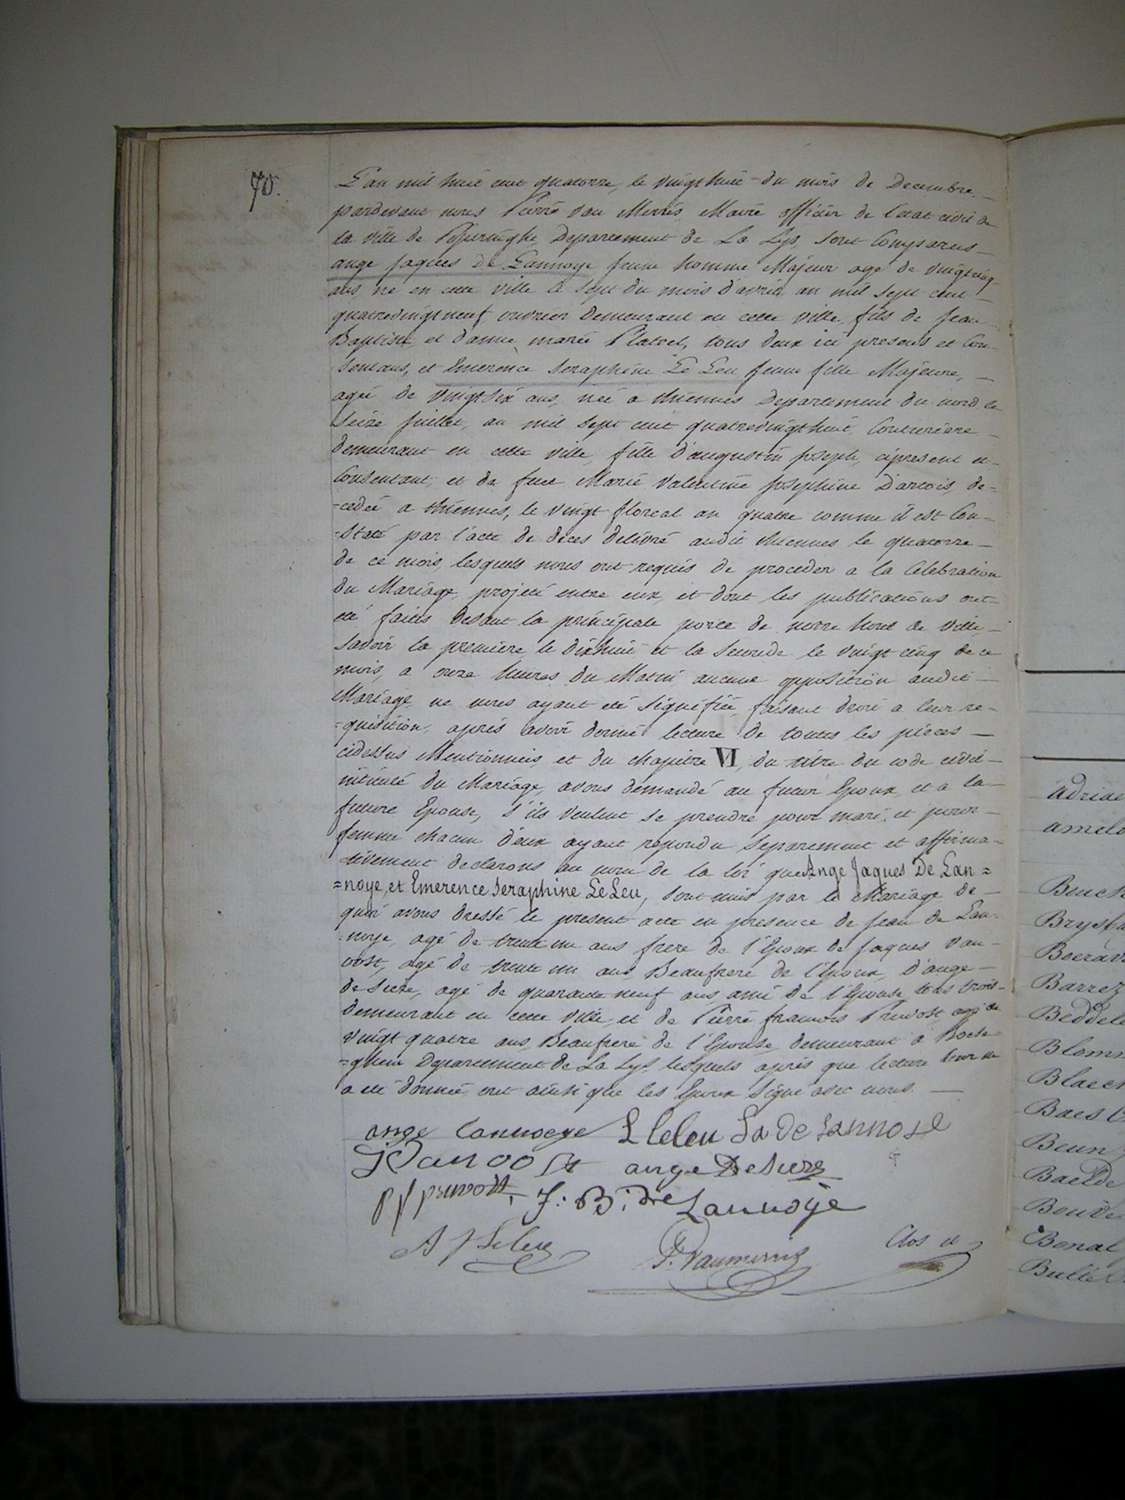 70.
L'an mil huit cent quatorze, le vingthuit du mois de Decembre
pardevant nous Pierre Van Merris Maire officier de l'etat civil de
la ville de Poperinghe Departement de La Lys, sont Comparus
ange Jaques De Lannoye jeune homme Majeur agé de vingtcinq
ans né en cette ville le sept du mois d'avril an mil sept cent
quatrevingt neuf ouvrier Demeurant en cette ville fils de Jean
Baptiste et d'anne marie Platvoet, tous deux ici presens et Con-
sentans, et Emerence Seraphine Le Leu jeune fille Majeure,
agée de vingtsix ans, née a thiennes Departement du nord le
seize juillet, an mil sept cent quatrevingthuit Couturiere
demeurant en cette ville, fille d'augustin joseph, cipresent et
Consentant, et de feue Marie Valentine Josephine Dartois, de-
-cedée a thiennes, le vingt floreal an quatre comme il est Con-
-staté par l'acte de déces delivré audit thiennes le quatorze
de ce mois, lesquels nous ont requis de proceder a la Celebration
du Mariage projeté entre eux, et dont les publications ont
été faites devant la principale porte de notre hotel de ville,
savoir la premiere le dixhuit et la seconde le vingt cinq de ce
mois, a onze heures du Matin aucune opposition audit
Mariage ne nous ayant été signifiée, faisant droit a leur re-
-quisition, après avoir donné lecture de toutes les pièces
cidessus Mentionnées et du chapitre VI, du titre du code civil
intitulé du Mariage, avons demandé au futur Epoux et a la
future Epouse, s'ils veulent se prendre pour mari, et pour
femme chacun d'eux ayant repondu separement et affirma-
tivement declarons au nom de la loi que Ange Jaques De Lan=
=noye, et Emerence Seraphine Le Leu, sont unis par le Mariage de
quoi avons dressé le present acte en presence de Jean de Lan-
noye, agé de trente un ans frere de l'Epoux de Jaques Van-
oost, agé de trente un ans Beaufrere de l'Epoux, D'ange
de Sure, agé de quarante neuf ans ami de l'Epouse tous trois
demeurant en cette ville, et de Pierre francois Pruvost agé de
vingt quatre ans, Beaufrere de l'Epouse, demeurant à Boese
=ghem Departement de La Lys lesquels après que lecture leur en
a été donnée ont ainsi que les Epoux signé avec nous.
ange Lannoeye E leleu J a De Lannoye
J Vanoost ange De Sure
p f pruvost, J: B: De Lannoÿe
A J Leleu P. Vanmerris Clos
Adriae
amelo
Bruch
Boerav
Barrez
Bedde
Blom
Blaec
Baes
Beun
Baelde
Bonal